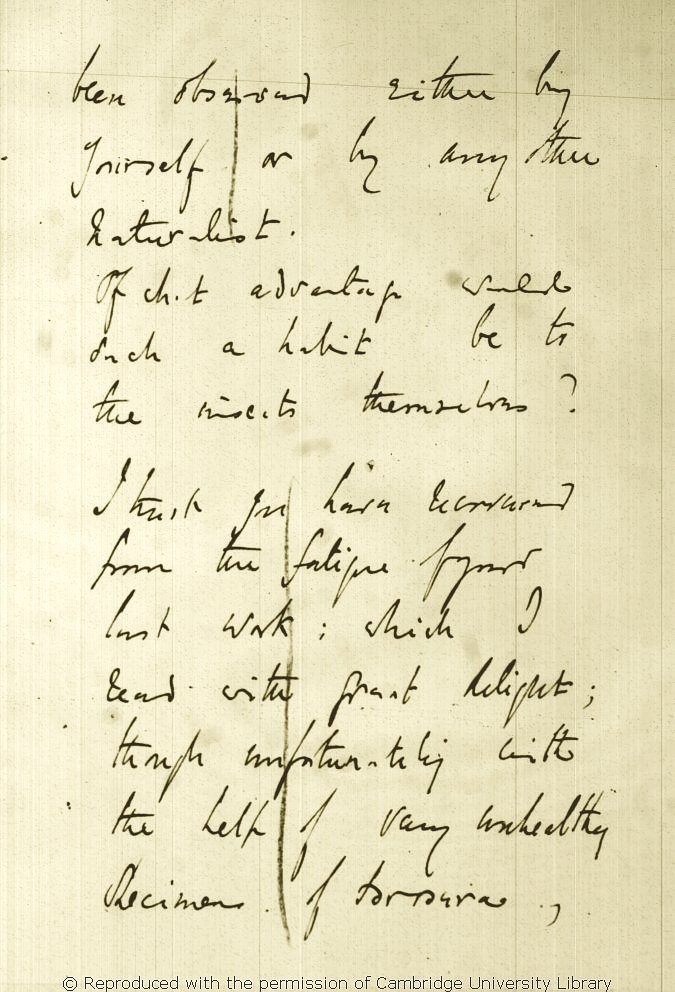 been observed either by
yourself or by any other
Naturalist.
Of what advantage would
such a habit be to
the insects themselves?
I trust you have recovered
from the fatigue of your
last work; which I
read with great delight;
though unfortunately with
the help of very unhealthy
Specimens of Drosera,
© Reproduced with the permission of Cambridge University Library